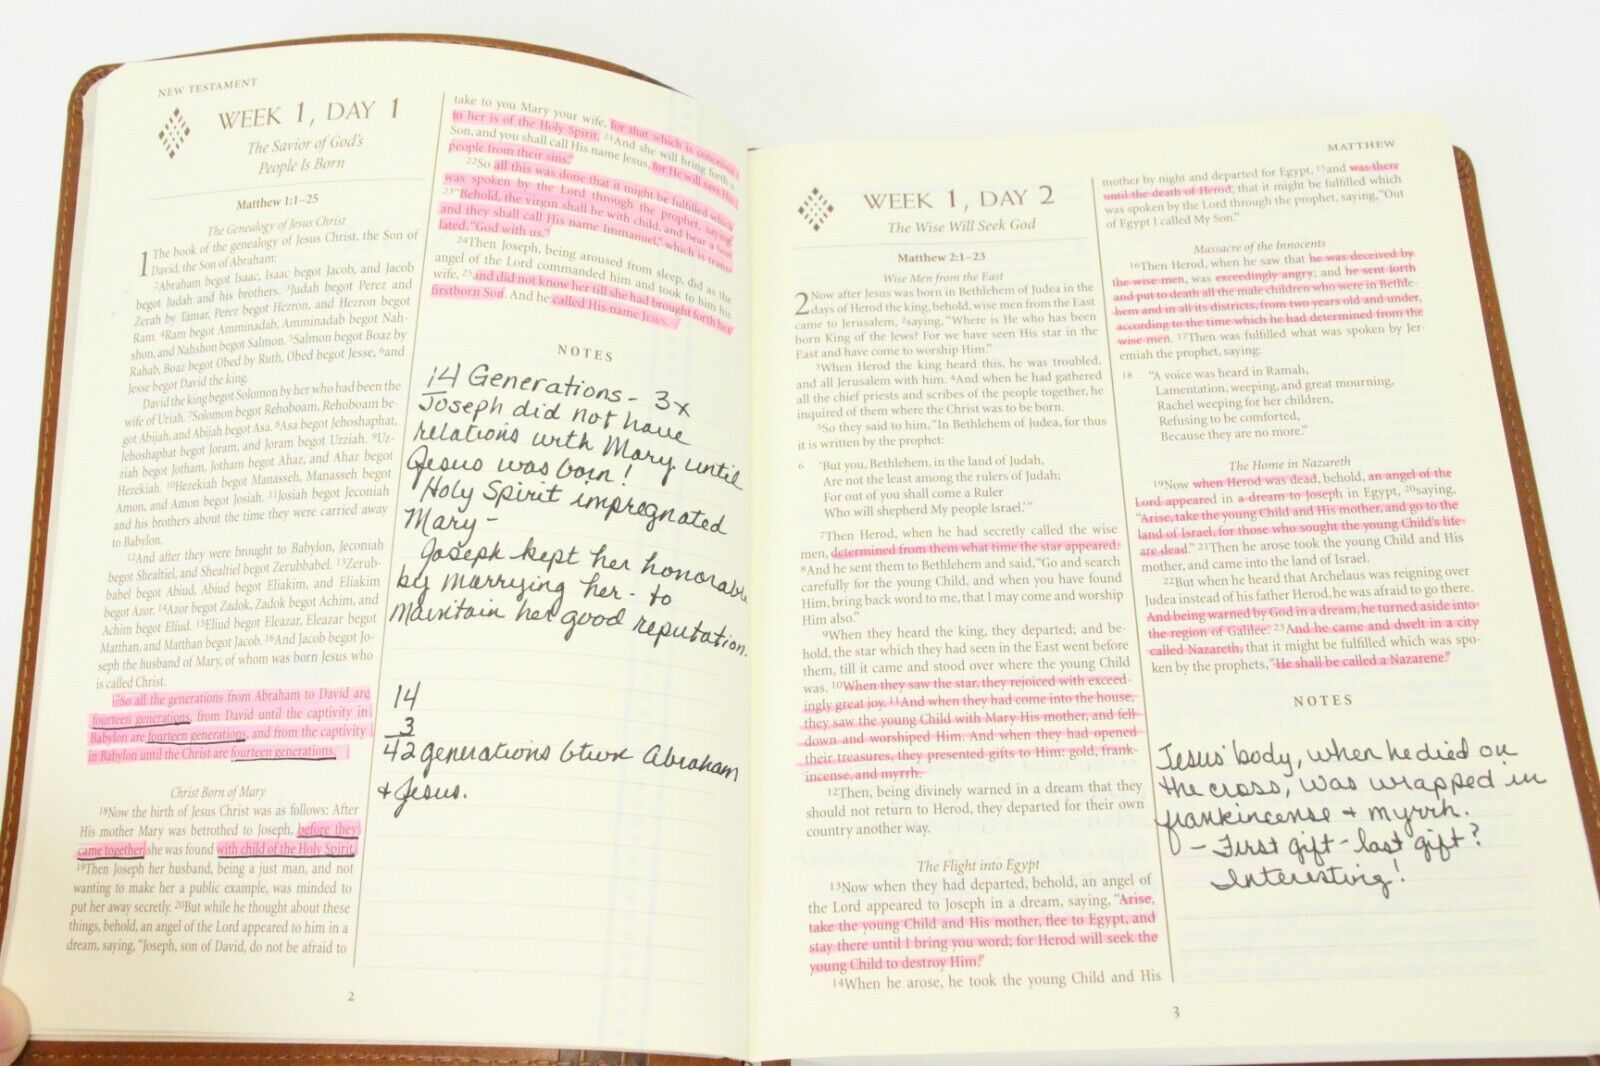 NEW TESTAMENT
WEEK 1, DAY 1
The Savior of God's
People Is Born
Matthew 1:1–25
The Genealogy of Jesus Christ
1 The book of the genealogy of Jesus Christ, the Son of
David, the Son of Abraham:
2Abraham begot Isaac, Isaac begot Jacob, and Jacob
begot Judah and his brothers. 3Judah begot Perez and
Zerah by Tamar, Perez begot Hezron, and Hezron begot
Ram. 4Ram begot Amminadab, Amminadab begot Nah-
shon, and Nahshon begot Salmon. 5Salmon begot Boaz by
Rahab, Boaz begot Obed by Ruth, Obed begot Jesse, 6and
Jesse begot David the king.
David the king begot Solomon by her who had been the
wife of Uriah. 7Solomon begot Rehoboam, Rehoboam be-
got Abijah, and Abijah begot Asa. 8Asa begot Jehoshaphat,
Jehoshaphat begot Joram, and Joram begot Uzziah. 9Uz-
ziah begot Jotham, Jotham begot Ahaz, and Ahaz begot
Hezekiah. 10Hezekiah begot Manasseh, Manasseh begot
Amon, and Amon begot Josiah. 11Josiah begot Jeconiah
and his brothers about the time they were carried away
to Babylon.
12And after they were brought to Babylon, Jeconiah
begot Shealtiel, and Shealtiel begot Zerubbabel. 13Zerub-
babel begot Abiud, Abiud begot Eliakim, and Eliakim
begot Azor. 14Azor begot Zadok, Zadok begot Achim, and
Achim begot Eliud. 15Eliud begot Eleazar, Eleazar begot
Matthan, and Matthan begot Jacob. 16And Jacob begot Jo-
seph the husband of Mary, of whom was born Jesus who
is called Christ.
17So all the generations from Abraham to David are
fourteen generations, from David until the captivity in
Babylon are fourteen generations, and from the captivity
in Babylon until the Christ are fourteen generations.
Christ Born of Mary
18Now the birth of Jesus Christ was as follows: After
His mother Mary was betrothed to Joseph, before they
came together, she was found with child of the Holy Spirit.
19Then Joseph her husband, being a just man, and not
wanting to make her a public example, was minded to
put her away secretly. 20But while he thought about these
things, behold, an angel of the Lord appeared to him in a
dream, saying, "Joseph, son of David, do not be afraid to
take to you Mary your wife, for that which is conceived
in her is of the Holy Spirit. 21And she will bring forth a
Son, and you shall call His name Jesus, for He will save His
people from their sins."
22So all this was done that it might be fulfilled which
was spoken by the Lord through the prophet, saying:
23"Behold, the virgin shall be with child, and bear a Son,
and they shall call His name Immanuel," which is trans-
lated, "God with us."
24Then Joseph, being aroused from sleep, did as the
angel of the Lord commanded him and took to him his
wife, 25and did not know her till she had brought forth her
firstborn Son. And he called His name Jesus.
NOTES
14 Generations - 3x
Joseph did not have
relations with Mary until
Jesus was born!
Holy Spirit impregnated
Mary -
Joseph kept her honorable
by marrying her - to
maintain her good reputation.
14
3
42 generations btwn Abraham
+ Jesus.
2
MATTHEW
WEEK 1, DAY 2
The Wise Will Seek God
Matthew 2:1–23
Wise Men from the East
2 Now after Jesus was born in Bethlehem of Judea in the
days of Herod the king, behold, wise men from the East
came to Jerusalem, 2saying, "Where is He who has been
born King of the Jews? For we have seen His star in the
East and have come to worship Him."
3When Herod the king heard this, he was troubled,
and all Jerusalem with him. 4And when he had gathered
all the chief priests and scribes of the people together, he
inquired of them where the Christ was to be born.
5So they said to him, "In Bethlehem of Judea, for thus
it is written by the prophet:
6 'But you, Bethlehem, in the land of Judah,
Are not the least among the rulers of Judah;
For out of you shall come a Ruler
Who will shepherd My people Israel.'"
7Then Herod, when he had secretly called the wise
men, determined from them what time the star appeared.
8And he sent them to Bethlehem and said, "Go and search
carefully for the young Child, and when you have found
Him, bring back word to me, that I may come and worship
Him also."
9When they heard the king, they departed; and be-
hold, the star which they had seen in the East went before
them, till it came and stood over where the young Child
was. 10When they saw the star, they rejoiced with exceed-
ingly great joy. 11And when they had come into the house,
they saw the young Child with Mary His mother, and fell
down and worshiped Him. And when they had opened
their treasures, they presented gifts to Him: gold, frank-
incense, and myrrh.
12Then, being divinely warned in a dream that they
should not return to Herod, they departed for their own
country another way.
The Flight into Egypt
13Now when they had departed, behold, an angel of
the Lord appeared to Joseph in a dream, saying, "Arise,
take the young Child and His mother, flee to Egypt, and
stay there until I bring you word; for Herod will seek the
young Child to destroy Him."
14When he arose, he took the young Child and His
mother by night and departed for Egypt, 15and was there
until the death of Herod, that it might be fulfilled which
was spoken by the Lord through the prophet, saying, "Out
of Egypt I called My Son."
Massacre of the Innocents
16Then Herod, when he saw that he was deceived by
the wise men, was exceedingly angry; and he sent forth
and put to death all the male children who were in Bethle-
hem and in all its districts, from two years old and under,
according to the time which he had determined from the
wise men. 17Then was fulfilled what was spoken by Jer-
emiah the prophet, saying:
18 "A voice was heard in Ramah,
Lamentation, weeping, and great mourning,
Rachel weeping for her children,
Refusing to be comforted,
Because they are no more."
The Home in Nazareth
19Now when Herod was dead, behold, an angel of the
Lord appeared in a dream to Joseph in Egypt, 20saying,
"Arise, take the young Child and His mother, and go to the
land of Israel, for those who sought the young Child's life
are dead." 21Then he arose took the young Child and His
mother, and came into the land of Israel.
22But when he heard that Archelaus was reigning over
Judea instead of his father Herod, he was afraid to go there.
And being warned by God in a dream, he turned aside into
the region of Galilee. 23And he came and dwelt in a city
called Nazareth, that it might be fulfilled which was spo-
ken by the prophets, "He shall be called a Nazarene."
NOTES
Jesus' body, when he died on
the cross, was wrapped in
frankincense + myrrh.
- First gift - last gift?
Interesting!
3